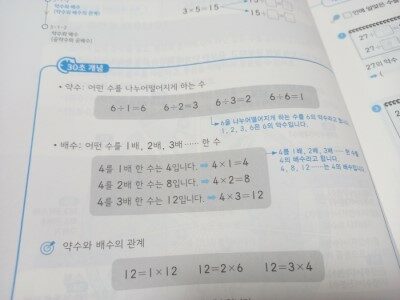 약수와 배수
(약수와 배수의 관계)
3×5=15
15÷
15÷
3-1-2
약수와 배수
(공약수와 공배수)
30초 개념
• 약수: 어떤 수를 나누어떨어지게 하는 수
6÷1=6 6÷2=3 6÷3=2 6÷6=1
6을 나누어떨어지게 하는 수를 6의 약수라고
1, 2, 3, 6은 6의 약수입니다.
• 배수: 어떤 수를 1배, 2배, 3배…… 한 수
4를 1배 한 수는 4입니다. ➡ 4×1=4
4를 2배 한 수는 8입니다. ➡ 4×2=8
4를 3배 한 수는 12입니다. ➡ 4×3=12
4를 1배, 2배, 3배…… 한 수를
4의 배수라고 합니다.
4, 8, 12……는 4의 배수입니다.
약수와 배수의 관계
12=1×12 12=2×6 12=3×4
안에 알맞은 수를
27÷
27÷
27의 약수